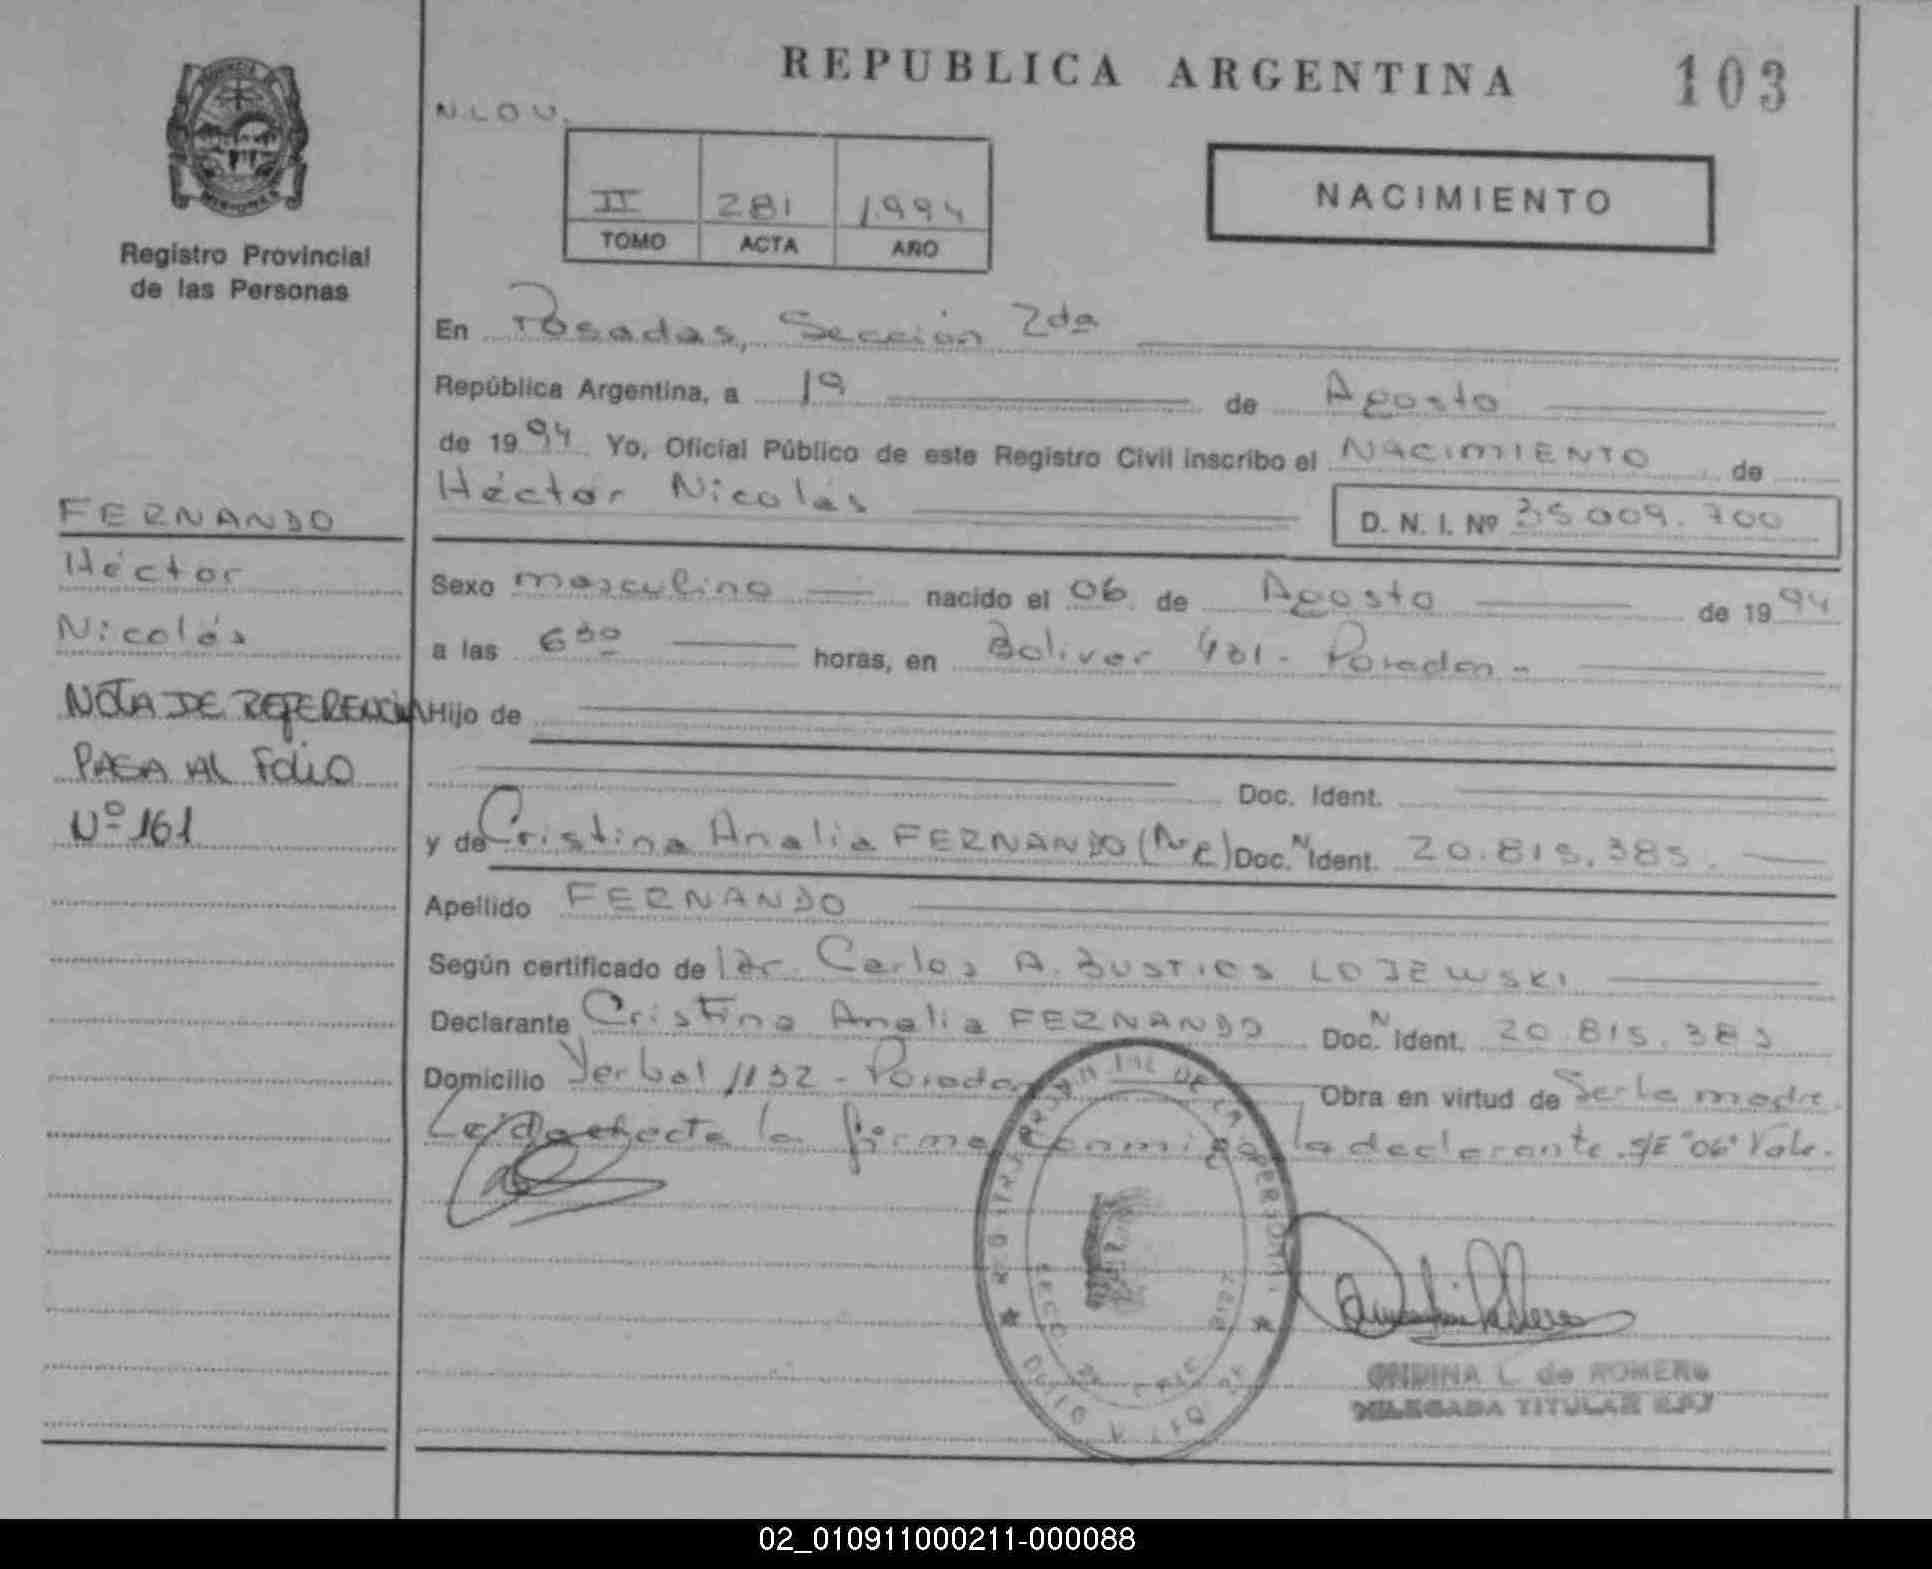 REPUBLICA ARGENTINA
103
N.L.O.U.
II 281 1.994
TOMO ACTA AÑO
NACIMIENTO
Registro Provincial
de las Personas
En Posadas, Sección 2da
República Argentina, a 19 de Agosto
de 1994 Yo, Oficial Público de este Registro Civil inscribo el NACIMIENTO de
Héctor Nicolás
D. N. I. Nº 35.009.700
FERNANDO
Héctor
Nicolás
NOTA DE REFERENCIA
PASA AL FOLIO
Nº 161
Sexo masculino nacido el 06 de Agosto de 1994
a las 6 30 horas, en Bolivar 401 - Posadas -
Hijo de
Doc. Ident.
y de Cristina Analia FERNANDO Doc. N Ident. 20.815.385.
Apellido FERNANDO
Según certificado de Dr. Carlos A. BUSTIOS LOJEWSKI
Declarante Cristina Analia FERNANDO Doc. N Ident. 20.815.385
Domicilio Yerbal 1132 - Posadas Obra en virtud de Ser la madre.
Leida el acta la firma conmigo la declarante. S/E "06" Vale.
ONDINA L. de ROMERO
DELEGADA TITULAR
02_010911000211-000088